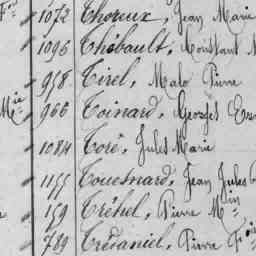 1072 Thoreux, Jean Marie
1096 Thébault, Constant M
958 Tirel, Malo Pierre
Mie 966 Toinard, Georges Ern
1084 Toré, Jules Marie
1155 Touesnard, Jean Jules
159 Tréhel, Pierre Min
789 Trédaniel, Pierre Fois